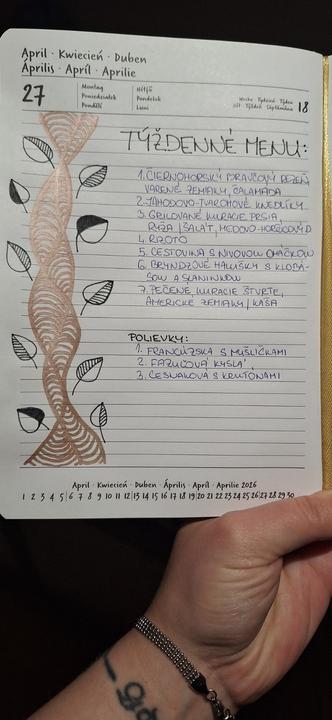 April · Kwiecień · Duben
Április · Apríl · Aprilie
27
Montag
Poniedziałek
Pondělí
Hétfő
Pondelok
Luni
Woche · Tydzień · Týden
Hét · Týždeň · Săptămâna
18
TÝŽDENNÉ MENU:
1. ČIERNOHORSKÝ BRAVČOVÝ REZEŇ,
VARENÉ ZEMIAKY, ČALAMÁDA
2. JAHODOVO-TVAROHOVÉ KNEDLÍKY
3. GRILOVANÉ KURACIE PRSIA,
RYŽA / ŠALÁT, MEDOVO-HORČICOVÝ D
4. RIZOTO
5. CESTOVINA S NIVOVOU OMÁČKOU
6. BRYNDZOVÉ HALUŠKY S KLOBÁ-
SOU A SLANINKOU
7. PEČENÉ KURACIE ŠTVRTE,
AMERICKÉ ZEMIAKY / KAŠA
POLIEVKY:
1. FRANCÚZSKA S MUŠLIČKAMI
2. FAZUĽOVÁ KYSLÁ
3. CESNAKOVÁ S KRUTÓNAMI
April · Kwiecień · Duben · Április · Apríl · Aprilie 2026
1 2 3 4 5 6 7 8 9 10 11 12 13 14 15 16 17 18 19 20 21 22 23 24 25 26 27 28 29 30